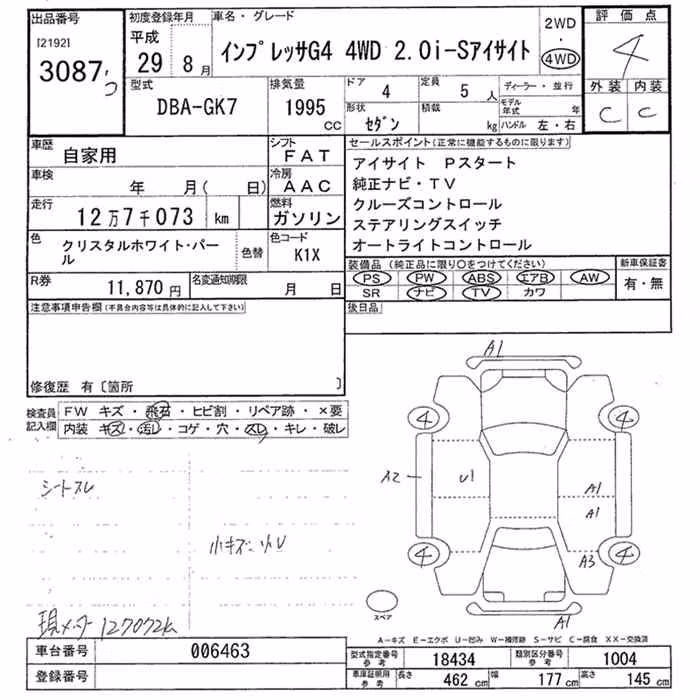 出品番号
[2192]
3087
初度登録年月
平成
29 年 8 月
車名・グレード
インプレッサG4 4WD 2.0i-Sアイサイト
2WD
・
4WD
評価点
4
外装 内装
C C
型式
DBA-GK7
排気量
1995 CC
ドア 4
定員 5 人
形状 セダン
積載 kg
ディーラー・並行
モデル年式 年
ハンドル 左・右
車歴 自家用
シフト FAT
車検 年 月( 日)
冷房 AAC
走行 12万7千073 km
燃料 ガソリン
色 クリスタルホワイト・パール
色替
色コード K1X
R券 11,870 円
名変通知期限 月 日
セールスポイント(正常に機能するものに限ります)
アイサイト Pスタート
純正ナビ・TV
クルーズコントロール
ステアリングスイッチ
オートライトコントロール
装備品(純正品に限り○をつけてください)
PS PW ABS エアB AW
SR ナビ TV カワ
新車保証書
有・無
注意事項申告欄(不具合内容等は具体的に記入して下さい)
後日品
修復歴 有〔箇所 〕
検査員記入欄
FW キズ・飛石・ヒビ割・リペア跡・×要
内装 キズ・汚レ・コゲ・穴・スレ・キレ・破レ
シートスレ
小キズ小U
現メーター127072k
A1
4 4
A2 U1 A1
A1
4 A3 4
スペア
A1
A-キズ E-エクボ U-凹み W-補修跡 S-サビ C-腐食 XX-交換済
車台番号 006463
登録番号
型式指定番号 参考 18434
類別区分番号 参考 1004
車庫証明用 参考 長さ 462 cm 幅 177 cm 高さ 145 cm